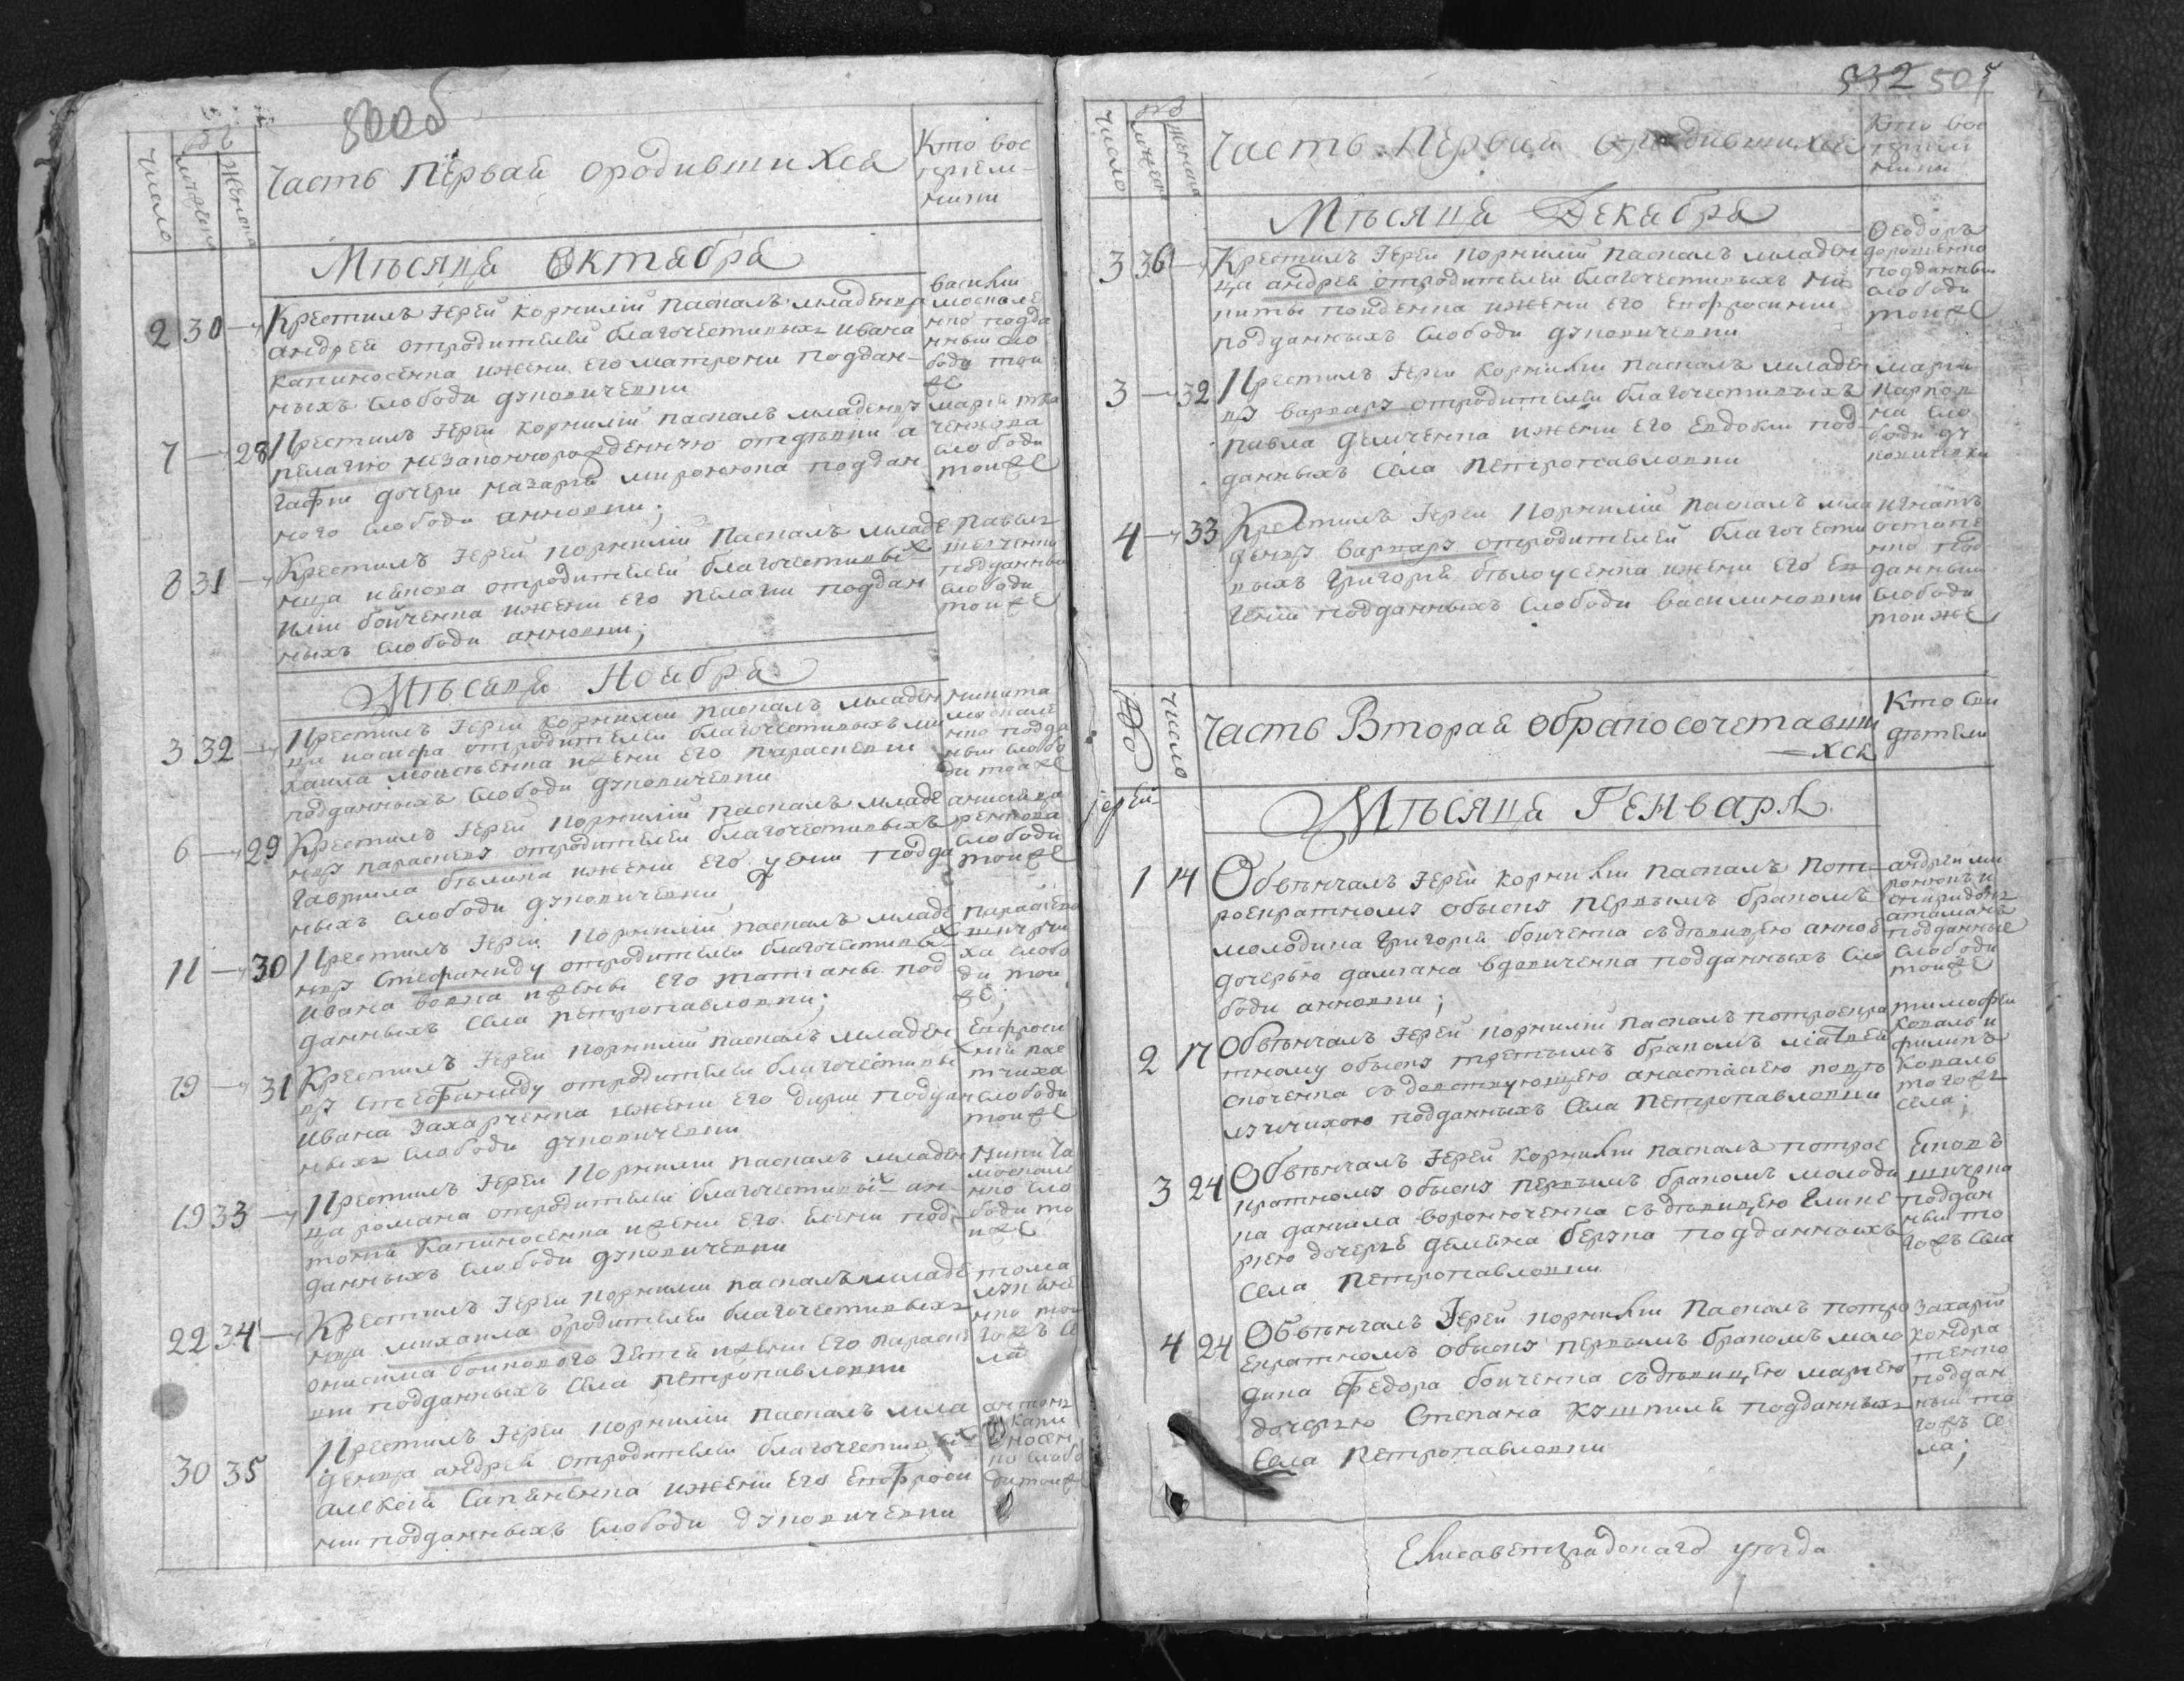 500об
число
мужеска
женска
Часть первая ородившихся
Кто вос
прием-
ники
Мѣсяца Октября
2 30
Крестилъ Іерей корнилій паскалъ младенца
андрея отродителей благочестивыхъ ивана
капиносенка ижени его матрони поддан-
ныхъ слободи дуковичевки
василій
москале
нко подда
нный сло
боди тои
же
7 28
Крестилъ Іерей корнилій паскалъ младенку
пелагию незаконнорожденную отдѣвки а
гафіи дочери назарія миронюка поддан
ного слободи анновки;
марія тка
ченкова
слободи
тоиже
8 31
Крестилъ Іерей корнилій паскалъ младе
нца иякова отродителей благочестивых
иліи бойченка ижени его пелагии поддан
ныхъ слободи анновки;
павелъ
подданный
слободи
тоиже
Мѣсяца Ноября
3 32
Крестилъ Іерей корнилій паскалъ младен
ца иосифа отродителей благочестивыхъ ми
хаила моисѣенка ижени его параскевии
подданныхъ слободи дуковичевки
никита
москале
нко подда
нный слобо
ди тоиже
6 29
Крестилъ Іерей корнилій паскалъ младе
нку параскеву отродителей благочестивыхъ
гавриила бѣлика ижени его подда
ныхъ слободи дуковичевки;
слободи
тоиже
11 30
Крестилъ Іерей корнилій паскалъ младе
нку Стефаниду отродителей благочестивы
ивана вовка ижены его татіаны под
данныхъ села петропавловки;
параскева
ха слобо
ди тои
же;
19 31
Крестилъ Іерей корнилій паскалъ младен
ку стефаниду отродителей благочестивы
ивана захарченка ижени его дарии поддан
ныхъ слободи дуковичевки
Ефроси
нія
слободи
тоиже
19 33
Крестилъ Іерей корнилій паскалъ младен
ца романа отродителей благочестивых ан-
тонія капиносенка ижени его елени под-
данныхъ слободи дуковичевки
москале
нко сло
боди то
иже
22 34
Крестилъ Іерей корнилій паскалъ младе
нца михаила ородителей благочестивыхъ
онисима бойкового зятя ижени его параске
вии подданныхъ села петропавловки
тома
нко то
гожъ се
ла
30 35
Крестилъ Іерей корнилій паскалъ мла
денца андрея отродителей благочестивы
алексія ижени его Ефроси
нии подданныхъ слободи дуковичевки
антонъ
капи
носен
ко слобо
ди тоиже
532 505
число
мужеска
женска
Часть Первая ородившихся
Кто вос
прием
ники
Мѣсяца Декабря
3 36
Крестилъ Іерей корнилій паскалъ младен
ца андрея отродителей благочестивыхъ ни
киты ижени его Ефросинии
подданныхъ слободи дуковичевки
Ѳеодоръ
дорошенко
подданный
слободи
тоиже
3 32
Крестилъ Іерей корнилій паскалъ младен
ку варвару отродителей благочестивыхъ
павла демченка ижени его Евдокии под-
данныхъ села петропавловки
марія
слободи ду
ковичевки
4 33
Крестилъ Іерей корнилій паскалъ мла
денку варвару отродителей благочести
выхъ григорія бѣлоусенка ижени его Ев
генії подданныхъ слободи василиновки
игнатъ
остапе
нко под
данный
слободи
тоижъ
число
Часть Вторая обракосочетавши
хся
Кто сви
дѣтели
іерей
Мѣсяца Генваря
1 14
Обвѣнчалъ Іерей корнилій паскалъ пот-
роекратномъ обыску первымъ бракомъ
молодика григорія бойченка сдѣвицею анною
дочерью дамяна вдовиченка подданныхъ сло
боди анновки;
андрей ми
ронюкъ и
спиридонъ
атаманъ
подданные
слободи
тоиже
2 17
Обвѣнчалъ Іерей корнилій паскалъ потроекра
тному обыску третьимъ бракомъ матвея
сдовствующею анастасіею
подданныхъ села петропавловки
тимофей
коваль и
филипъ
коваль
тогожъ
села;
3 24
Обвѣнчалъ Іерей корнилій паскалъ потрое
кратномъ обыску первымъ бракомъ молоди
ка даниила воронюченка сдѣвицею глике
риею дочерье демяна подданныхъ
села петропавловки
яковъ
поддан
ный то
гожъ села
4 24
Обвѣнчалъ Іерей корнилій паскалъ потро
екратномъ обыску первымъ бракомъ моло
дика федора бойченка сдѣвицею мариею
дочерью степана кушниля подданныхъ
села петропавловки
захарій
кондра
тенко
поддан
ный то
гожъ се
ла;
Елисаветградскаго уѣзда